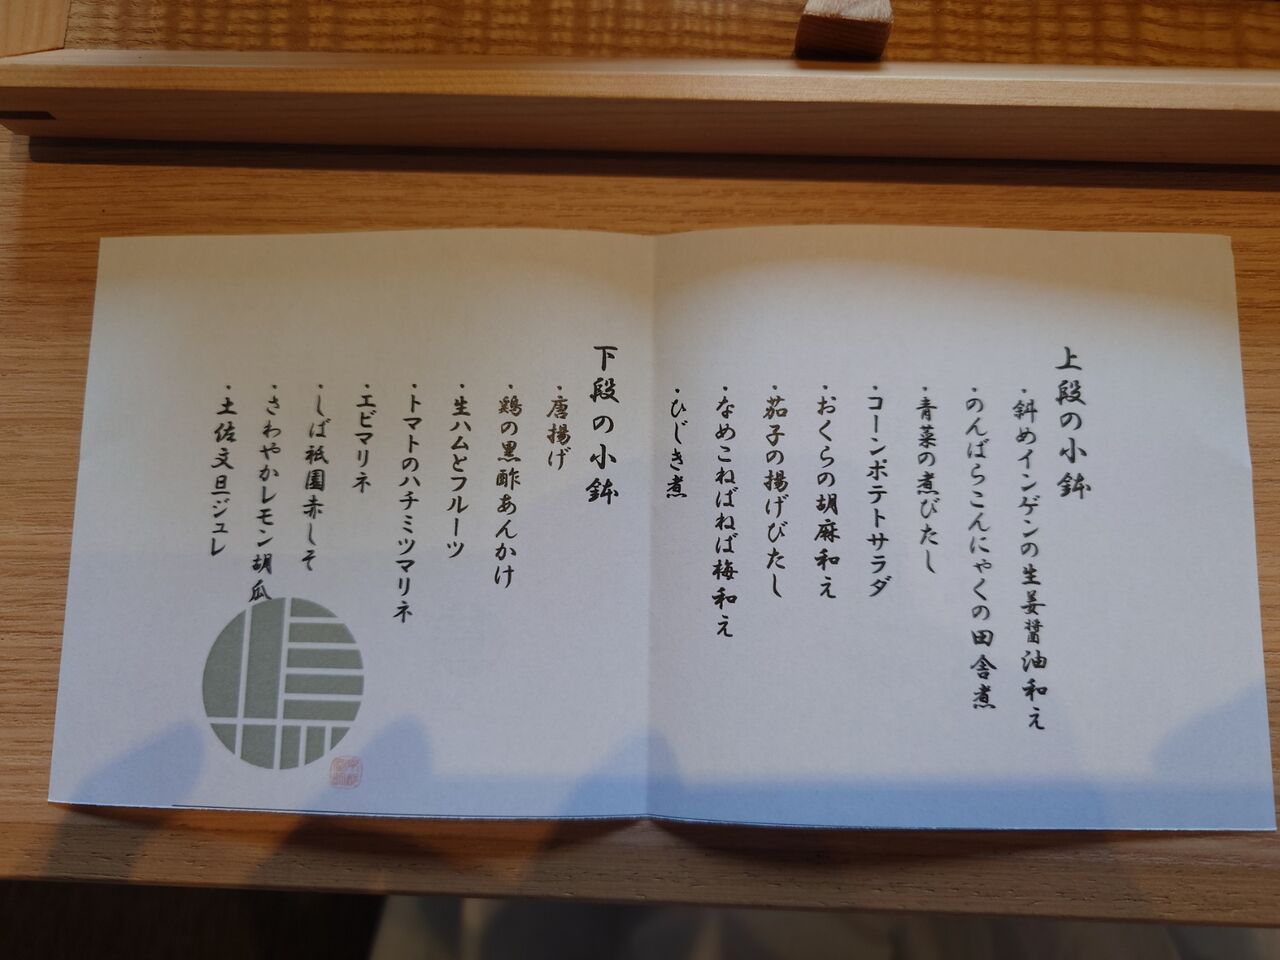 上段の小鉢
・斜めインゲンの生姜醤油和え
・のんばらこんにゃくの田舎煮
・青菜の煮びたし
・コーンポテトサラダ
・おくらの胡麻和え
・茄子の揚げびたし
・なめこねばねば梅和え
・ひじき煮
下段の小鉢
・唐揚げ
・鶏の黒酢あんかけ
・生ハムとフルーツ
・トマトのハチミツマリネ
・エビマリネ
・しば祇園赤しそ
・さわやかレモン胡瓜
・土佐文旦ジュレ